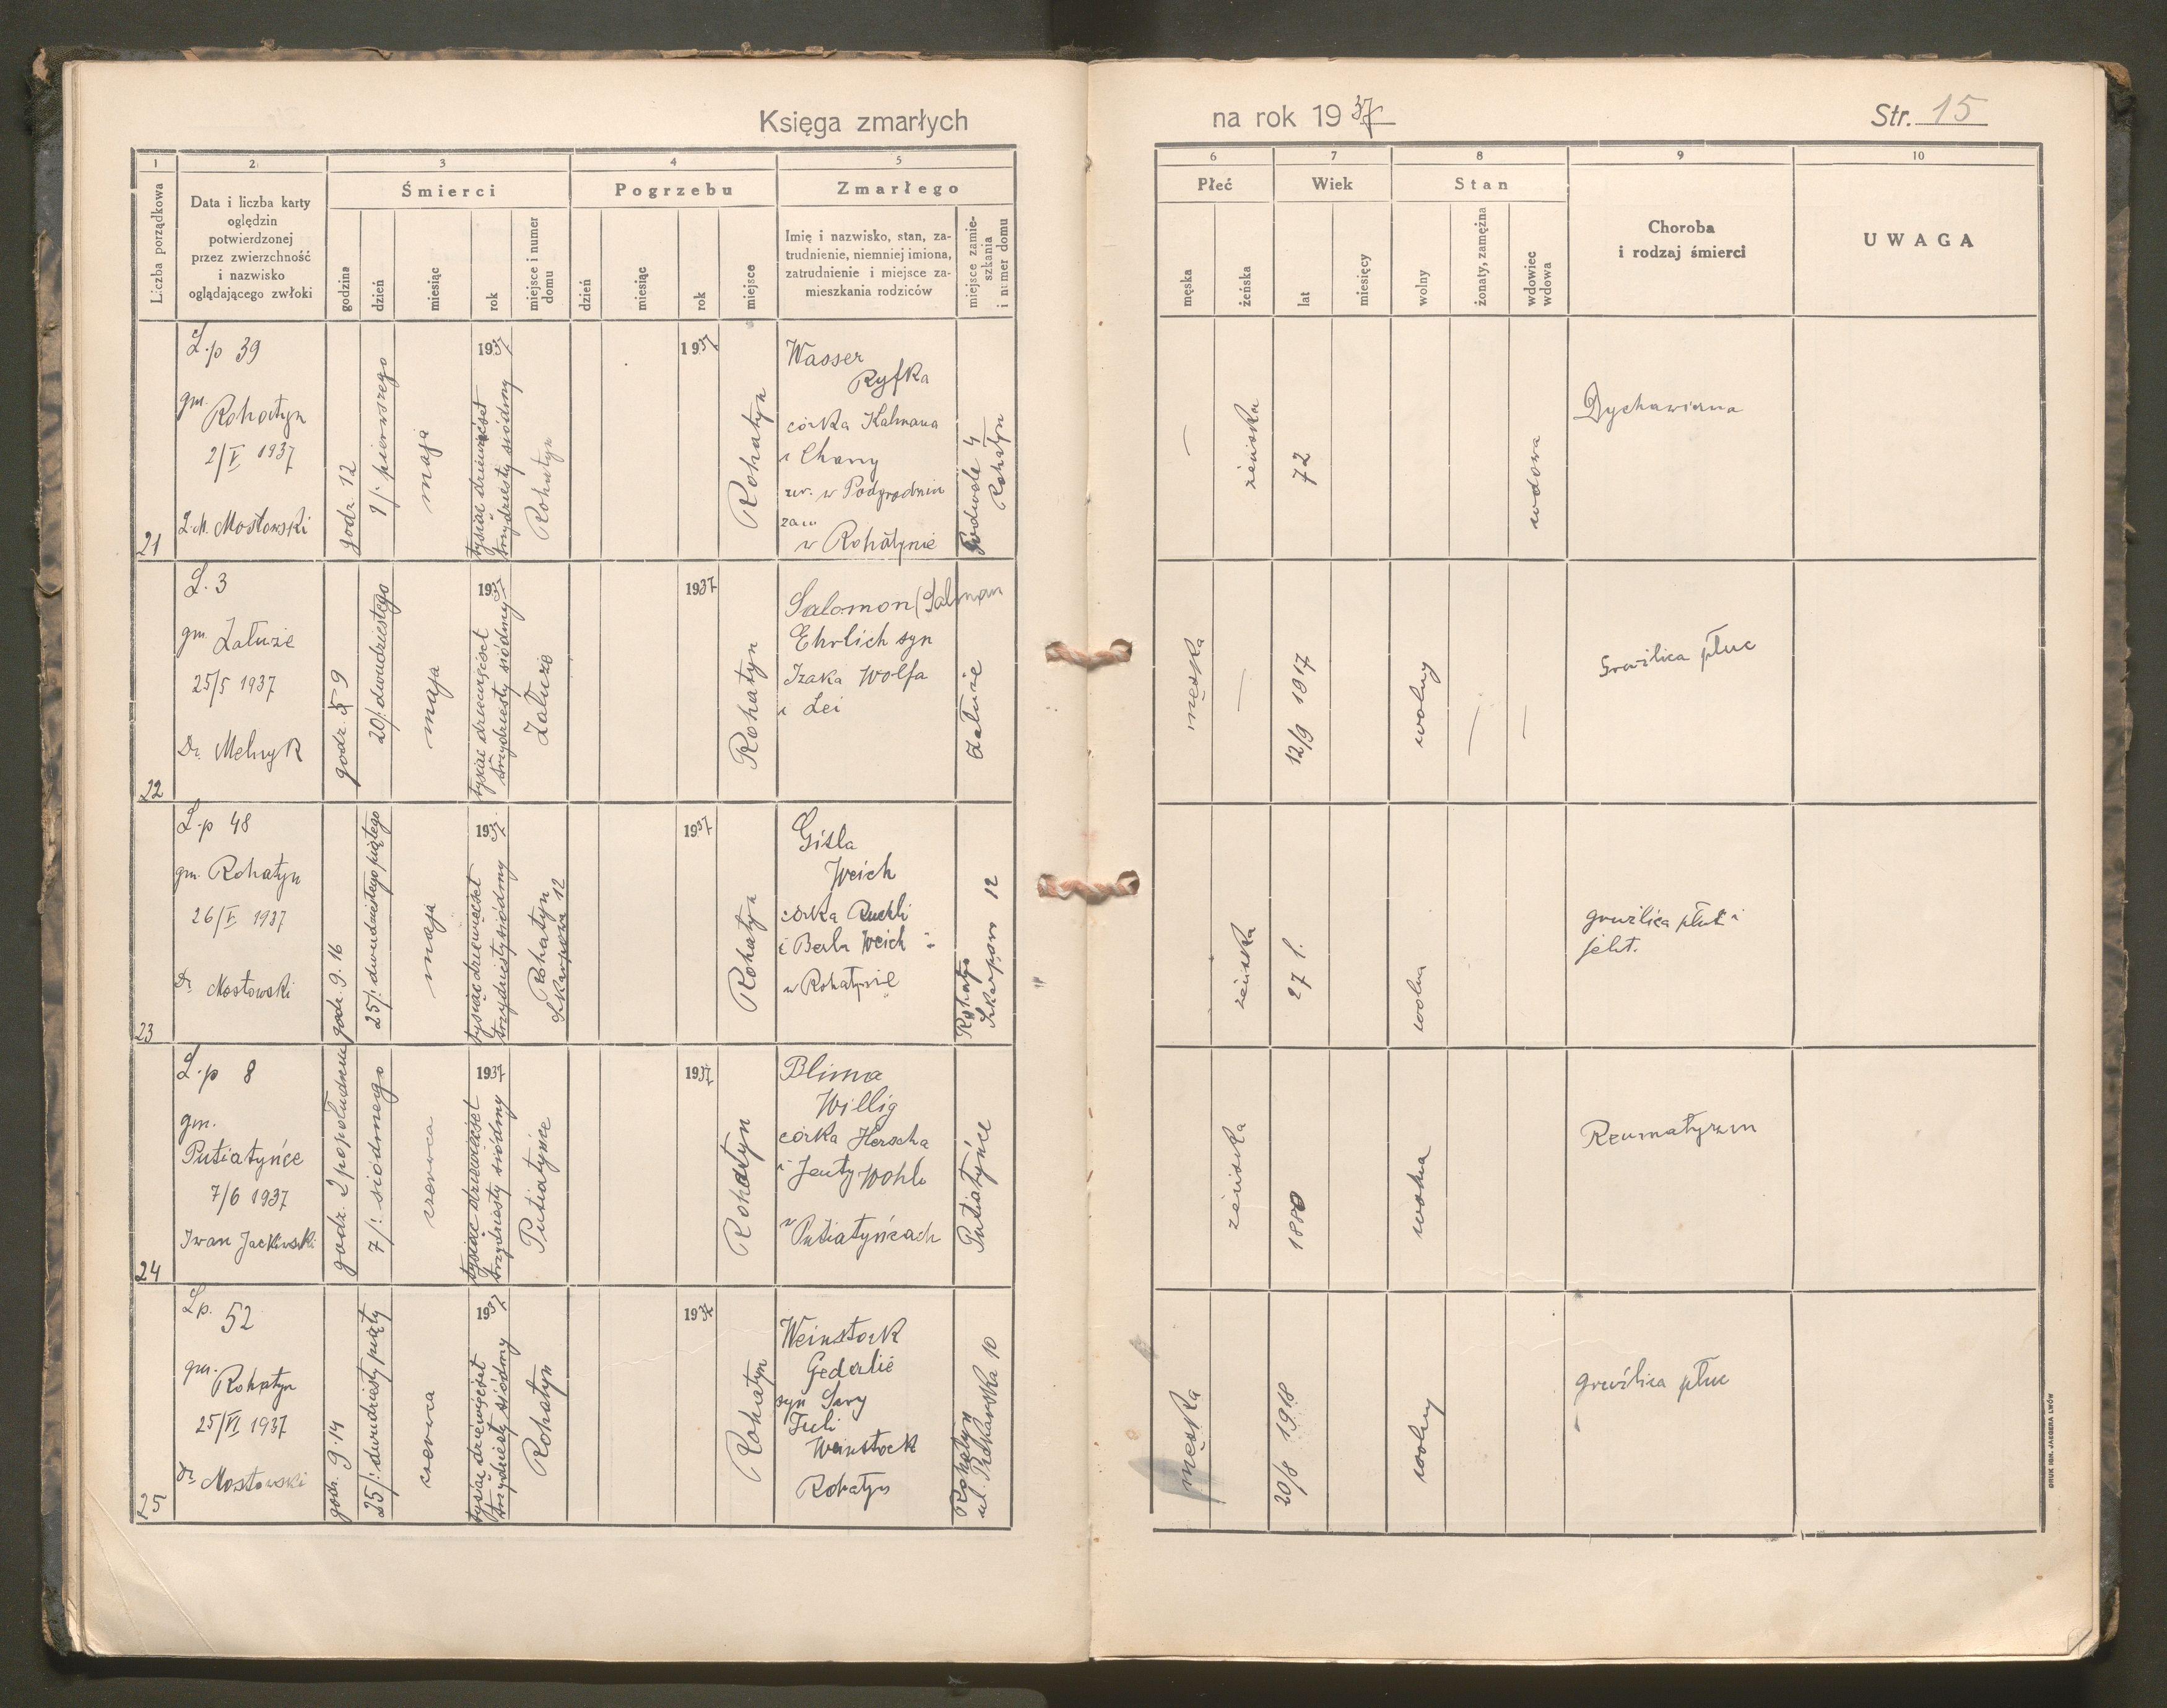 Księga zmarłych
na rok 1937
Str. 15
1
2
3
4
5
6
7
8
9
10
Liczba porządkowa
Data i liczba karty
oględzin
potwierdzonej
przez zwierzchność
i nazwisko
oglądającego zwłoki
Śmierci
godzina
dzień
miesiąc
rok
miejsce i numer
domu
Pogrzebu
dzień
miesiąc
rok
miejsce
Zmarłego
Imię i nazwisko, stan, za-
trudnienie, niemniej imiona,
zatrudnienie i miejsce za-
mieszkania rodziców
miejsce zamie-
szkania
i numer domu
Płeć
męska
żeńska
Wiek
lat
miesięcy
Stan
wolny
żonaty, zamężna
wdowiec
wdowa
Choroba
i rodzaj śmierci
UWAGA
21
L.p 39
gm.
Rohatyn
2/V 1937
Mostowski
godz. 12
1/: pierwszego
maja
1937
tysiąc dziewięćset
trzydziesty siódmy
Rohatyn
1937
Rohatyn
Wasser
Ryfka
córka Kalmana
i Chany
ur. w
zam
w Rohatynie
Podwale 4
Rohatyn
żeńska
72
wdowa
Dychawica
22
L. 3
gm. Załuże
25/5 1937
Dr. Melnyk
godz. 9
20/: dwudziestego
maja
1937
tysiąc dziewięćset
trzydziesty siódmy
Załuże
1937
Rohatyn
Salomon (Salman
Ehrlich syn
Izaka Wolfa
i Lei
Załuże
męska
12/9 1917
wolny
Gruźlica płuc
23
L.p 48
gm. Rohatyn
26/V 1937
Dr. Mostowski
godz. g. 16
25/: dwudziestego piątego
maja
1937
tysiąc dziewięćset
trzydziesty siódmy
Rohatyn
Skarpowa 12
1937
Rohatyn
Gisla
Weich
córka Ruchli
i Berla Weich
w Rohatynie
Rohatyn
12
żeńska
27 l.
wolna
gruźlica płuc i
jelit.
24
L.p 8
gm.
Putiatyńce
7/6 1937
Iwan
godz. 2 popołudniu
7/: siódmego
czerwca
1937
tysiąc dziewięćset
trzydziesty siódmy
Putiatyńce
1937
Rohatyn
Blima
Willig
córka Herscha
i Jenty Wohl
w
Putiatyńcach
Putiatyńce
żeńska
1880
wolna
Reumatyzm
25
Lp. 52
gm.
Rohatyn
25/VI 1937
Dr Mostowski
godz. g. 14
25/: dwudziesty piąty
czerwca
1937
tysiąc dziewięćset
trzydziesty siódmy
Rohatyn
1937
Rohatyn
Weinstock
Gedalie
syn Sary
Weinstock
Rohatyn
Rohatyn
10
męska
20/8 1918
wolny
gruźlica płuc
DRUK IGN. JAEGERA LWÓW